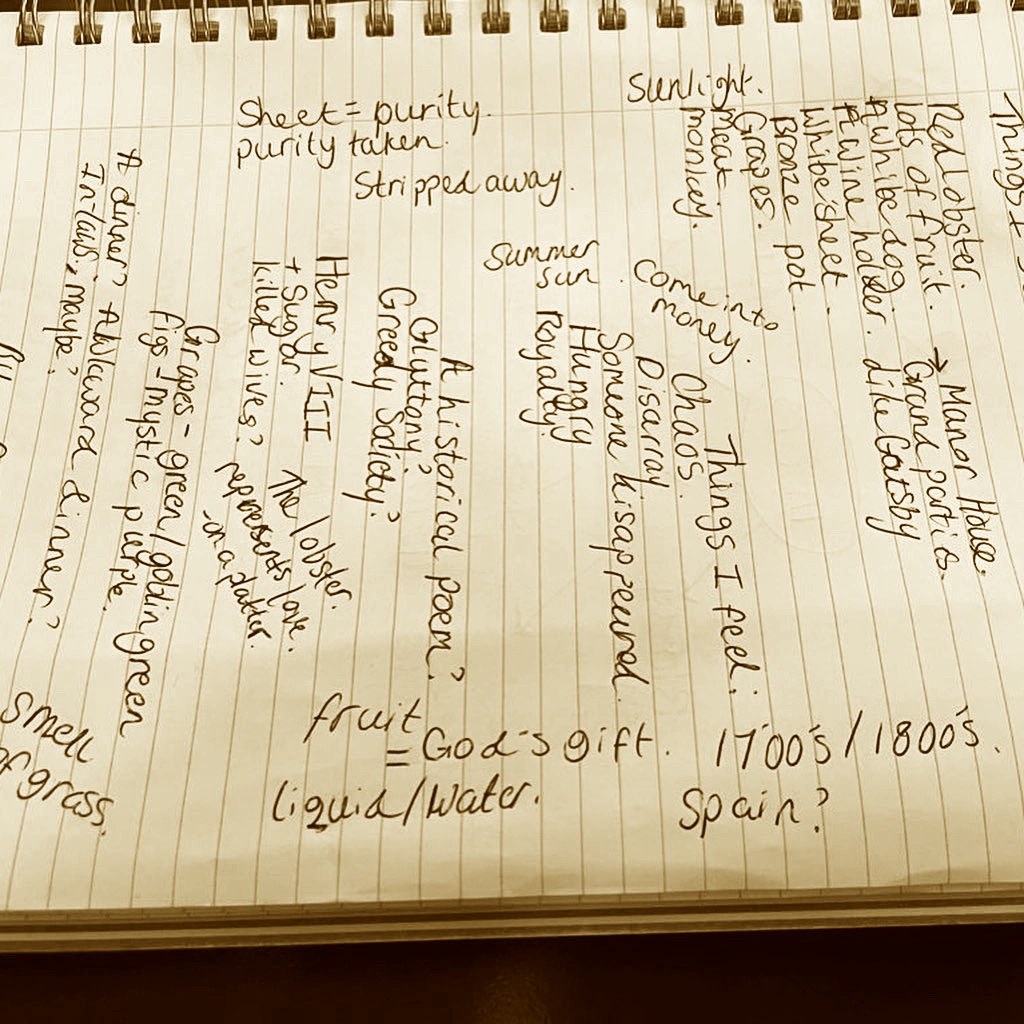 Things I s
Red lobster.
Lots of fruit. → Manor House.
A white dog Grand parties.
A wine holder. like Gatsby
White sheet.
Bronze pot.
Grapes.
Meat
Monkey.
Sunlight.
Come into
money.
Things I feel:
Chaos.
Disarray
Someone disappeared.
Hungry
Royalty.
Summer
sun.
Sheet = purity.
purity taken.
Stripped away.
A historical poem?
Gluttony?
Greedy Society?
Henry VIII
+ Sugar.
killed wives?
The lobster.
represents love.
on a platter.
Grapes - green/golden green
figs - mystic purple.
A dinner? Awkward dinner?
Inlaws, maybe?
Smell
of grass.
fruit
= God's gift.
liquid/water.
1700's/1800's.
Spain?